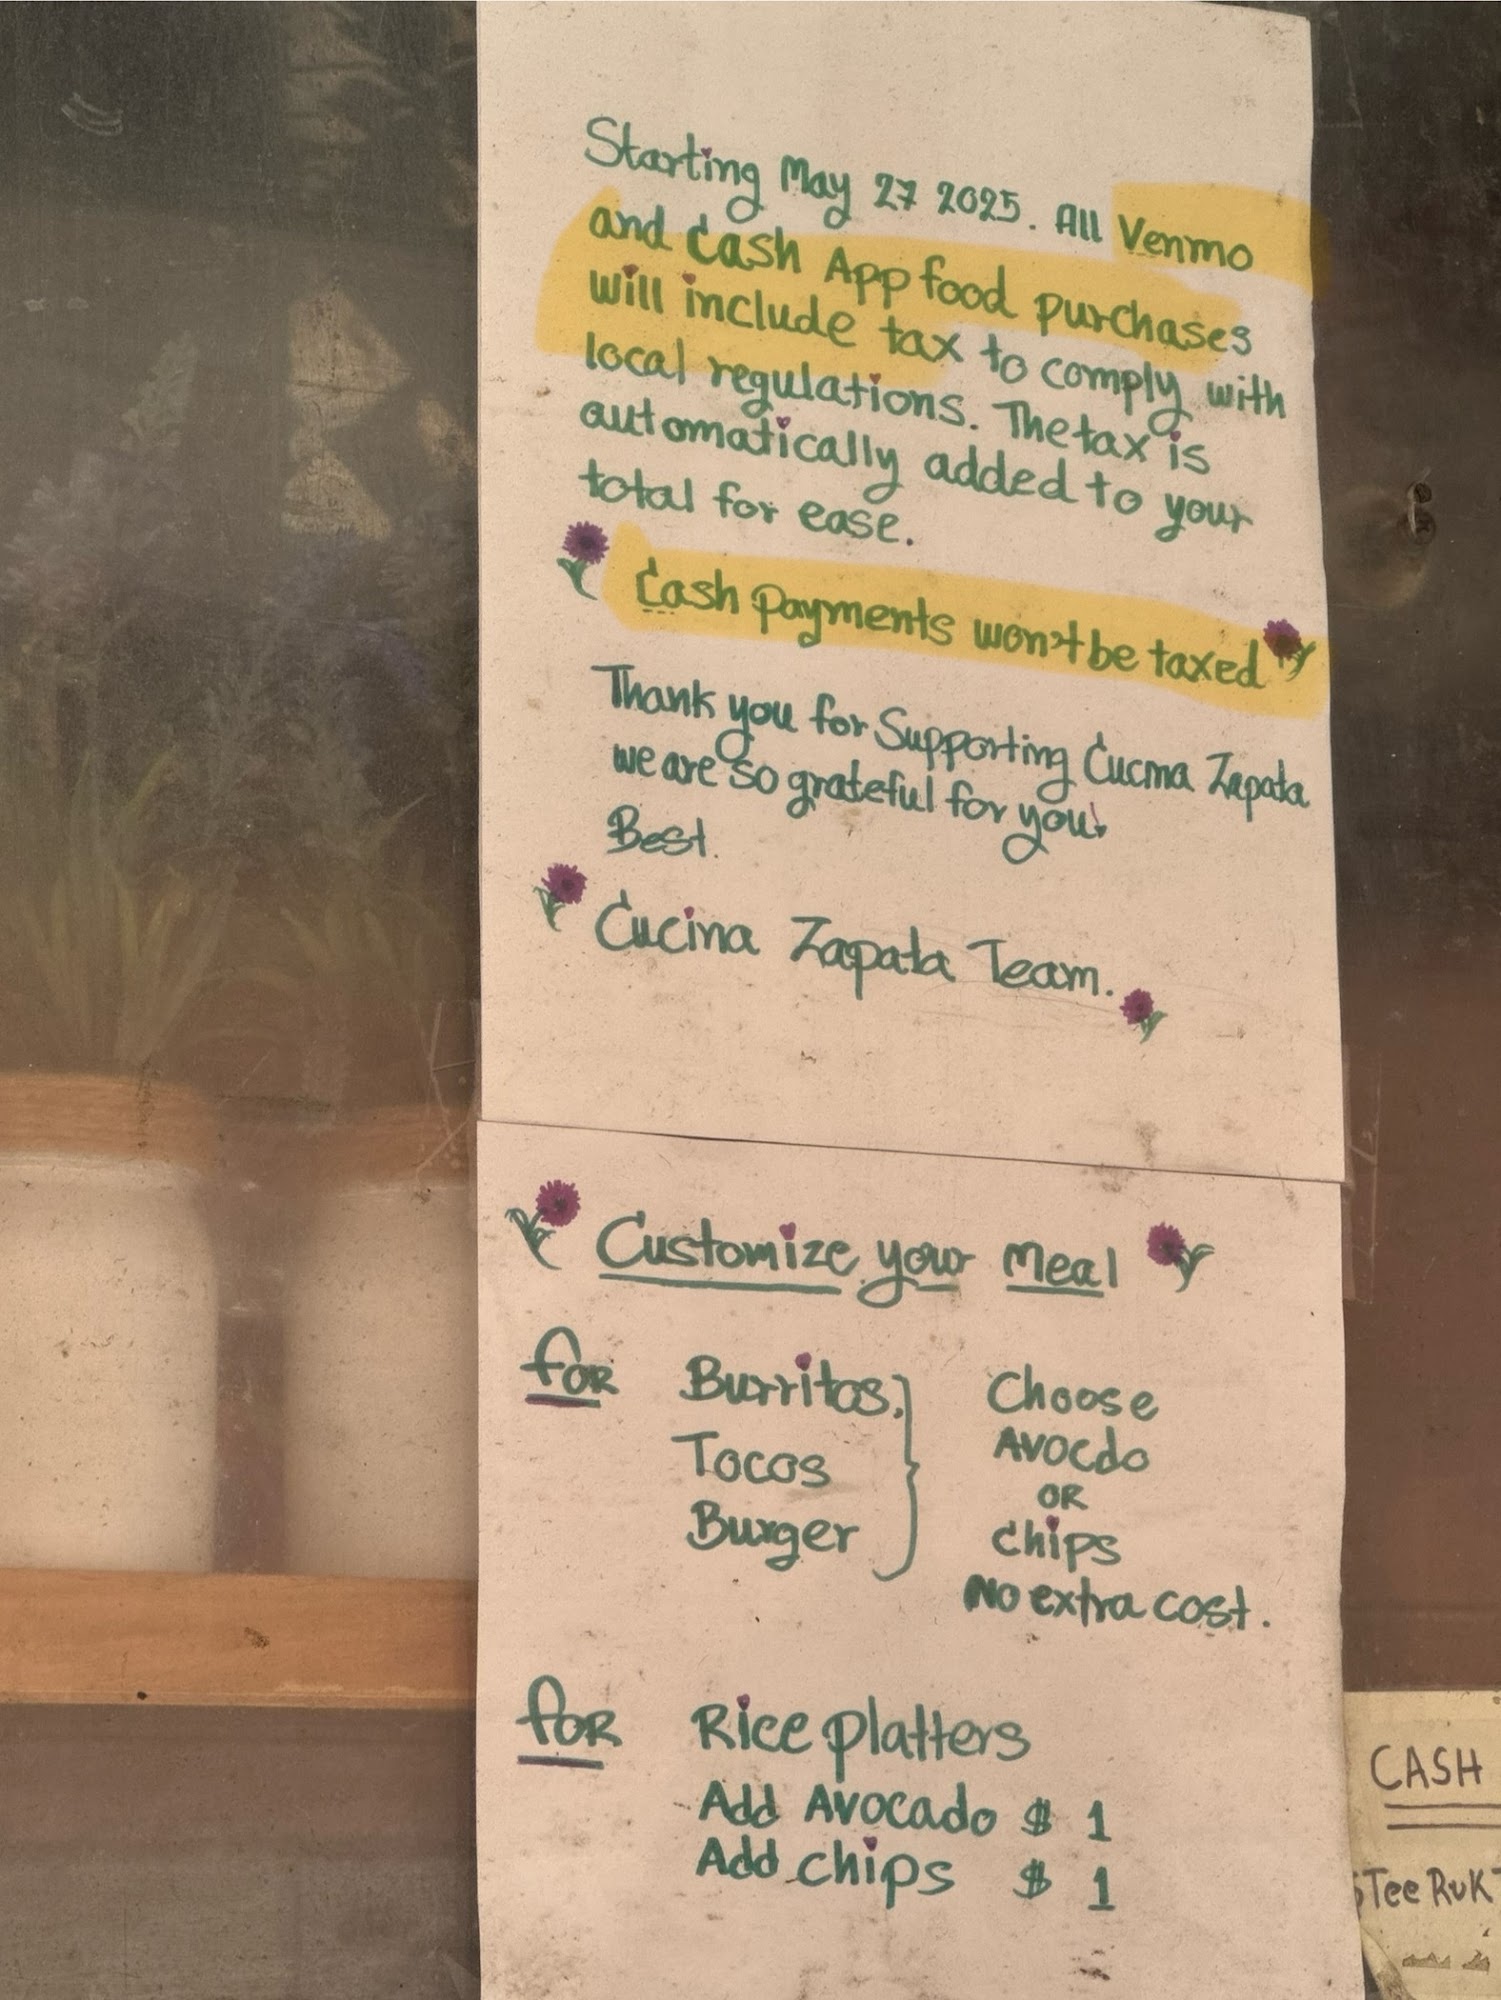 Starting May 27 2025. All Venmo
and Cash App food purchases
will include tax to comply with
local regulations. The tax is
automatically added to your
total for ease.
Cash payments won't be taxed
Thank you for Supporting Cucina Zapata
we are so grateful for you!
Best.
Cucina Zapata Team.
Customize your Meal
for Burritos, Choose
Tocos Avocdo
OR
Burger Chips
No extra cost.
for Rice platters
Add Avocado $ 1
Add chips $ 1
CASH